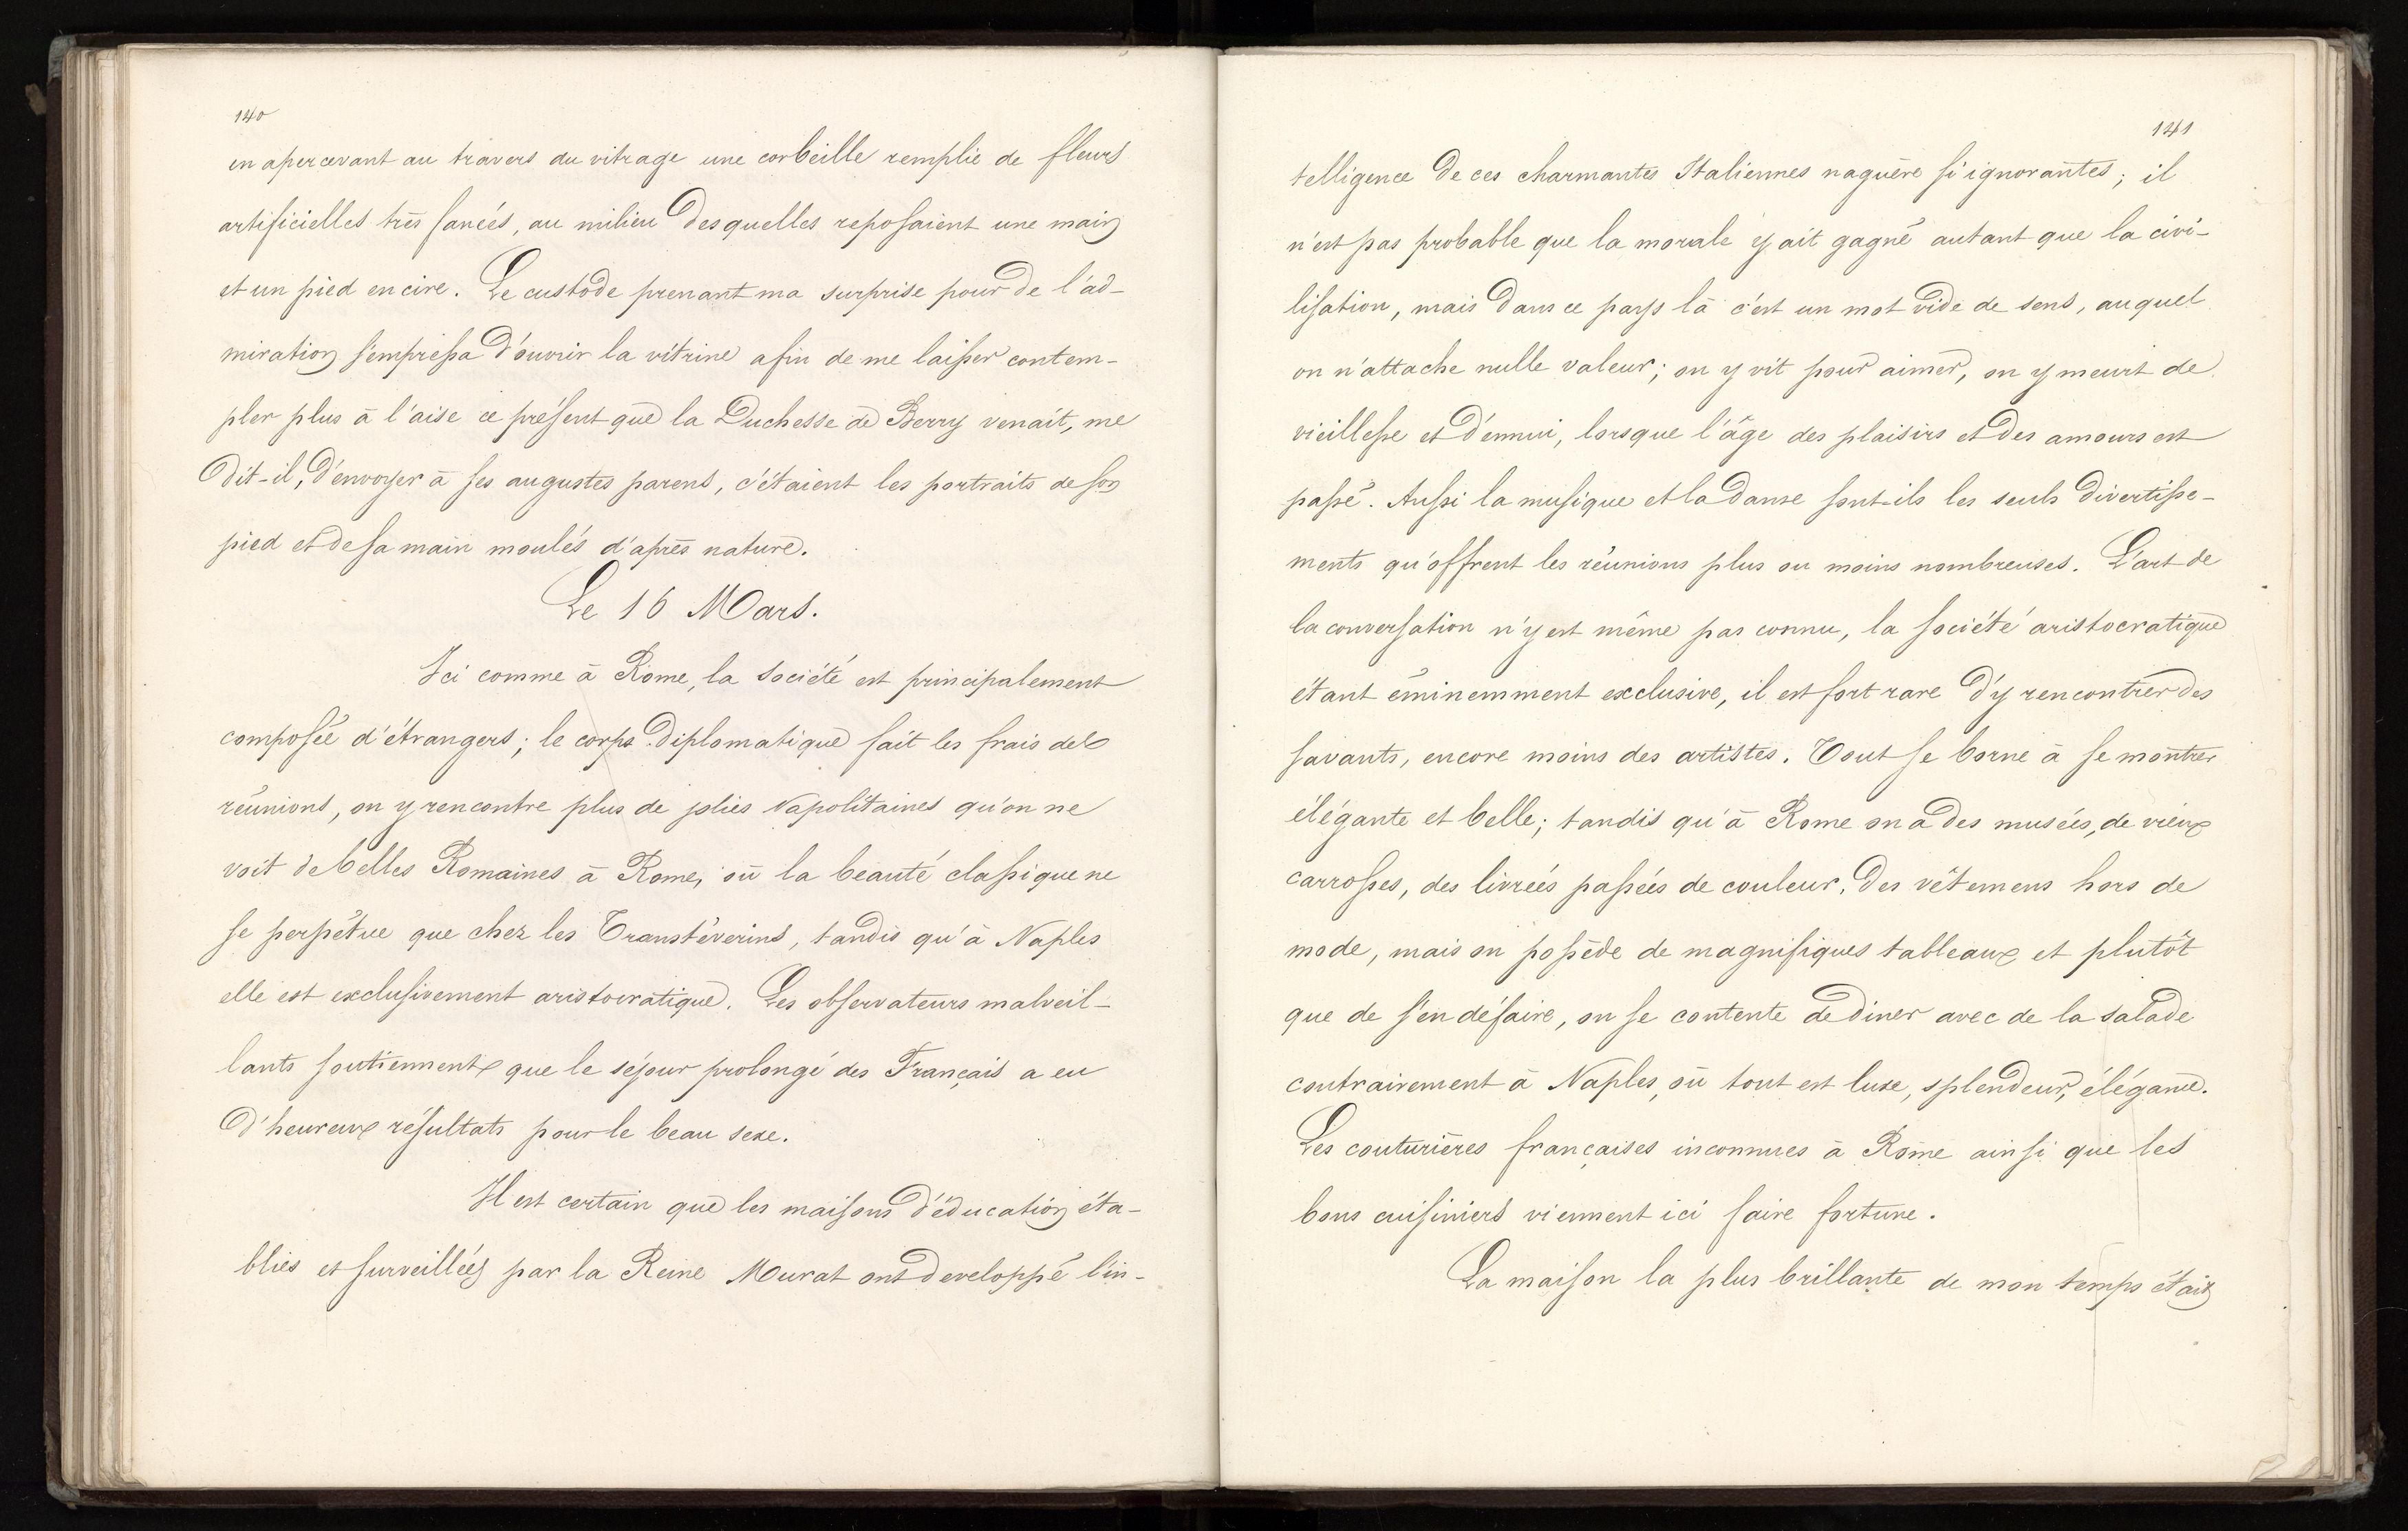 140
en apercevant au travers du vitrage une corbeille remplie de fleurs
artificielles très fanées, au milieu desquelles reposaient une main
et un pied en cire. Le custode prenant ma surprise pour de l'ad-
miration s'empressa d'ouvrir la vitrine afin de me laisser contem-
pler plus à l'aise ce présent que la Duchesse de Berry venait, me
dit-il, d'envoyer à ses augustes parens, c'étaient les portraits de son
pied et de sa main moulés d'après nature.
Le 16 Mars.
Ici comme à Rome, la société est principalement
composée d'étrangers; le corps diplomatique fait les frais de
réunions, on y rencontre plus de jolies Napolitaines qu'on ne
voit de belles Romaines à Rome, où la beauté classique ne
se perpétue que chez les Transtéverins, tandis qu'à Naples
elle est exclusivement aristocratique. Les observateurs malveil-
lants soutiennent que le séjour prolongé des Français a eu
d'heureux résultats pour le beau sexe.
Il est certain que les maisons d'éducation éta-
blies et surveillées par la Reine Murat ont developpé l'in-
141
telligence de ces charmantes Italiennes naguère si ignorantes; il
n'est pas probable que la morale y ait gagné autant que la civi-
lisation, mais dans ce pays là c'est un mot vide de sens, auquel
on n'attache nulle valeur; on y vit pour aimer, on y meurt de
vieillesse et d'ennui, lorsque l'âge des plaisirs et des amours est
passé. Aussi la musique et la danse sont-ils les seuls divertisse-
ments qu'offrent les réunions plus ou moins nombreuses. L'art de
la conversation n'y est même pas connu, la société aristocratique
étant éminemment exclusive, il est fort rare d'y rencontrer des
savants, encore moins des artistes. Tout se borne à se montrer
élégante et belle; tandis qu'à Rome on a des musées, de vieux
carrosses, des livrées passées de couleur, des vêtemens hors de
mode, mais on possède de magnifiques tableaux et plutôt
que de s'en défaire, on se contente de diner avec de la salade
contrairement à Naples, où tout est luxe, splendeur, élégance.
Les couturières françaises inconnues à Rome ainsi que les
bons cuisiniers viennent ici faire fortune.
La maison la plus brillante de mon temps était